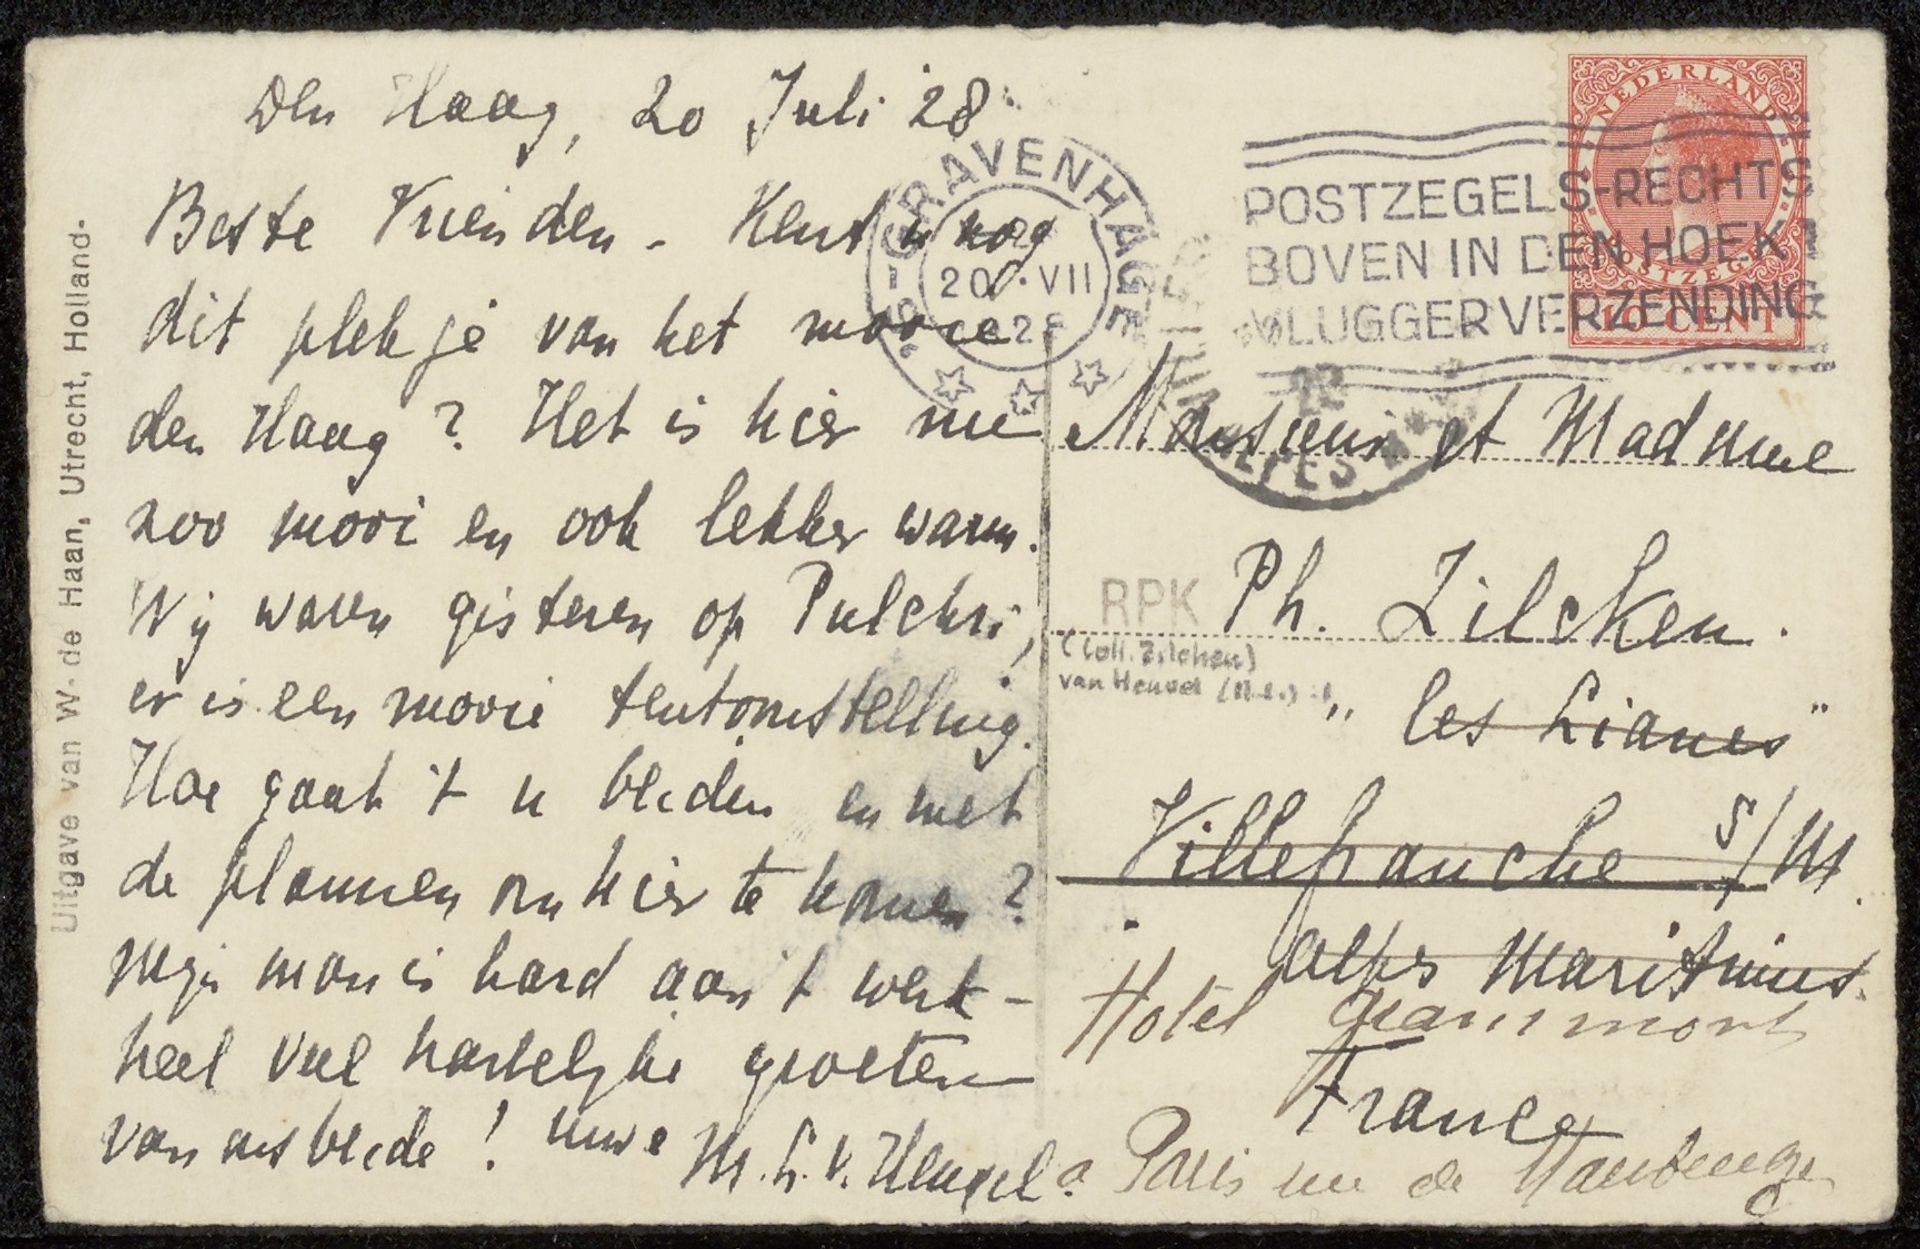 Den Haag, 20 Juli '28
Beste Vrienden - Kent u nog
dit plekje van het mooie
den Haag? Het is hier nu
zoo mooi en ook lekker warm.
Wij waren gisteren op Pulchri,
er is een mooie tentoonstelling.
Hoe gaat 't u beiden en met
de plannen om hier te komen?
mijn man is hard aan 't werk -
heel veel hartelijke groeten
van ons beide! Uwe M. L. v.
Uitgave van W. de Haan, Utrecht, Holland.
'S-GRAVENHAGE
20 VII
POSTZEGELS-RECHTS
BOVEN IN DEN HOEK
VLUGGER VERZENDING
NEDERLAND
POSTZEGEL
10 CENT
ALPES
Monsieur et Madame
RPK
Ph. Zilcken.
(Coll. Zilcken)
van
"les Lianes"
Villefranche s/M.
alpes Maritimes.
Hotel
France
a Paris rue de Maubeuge